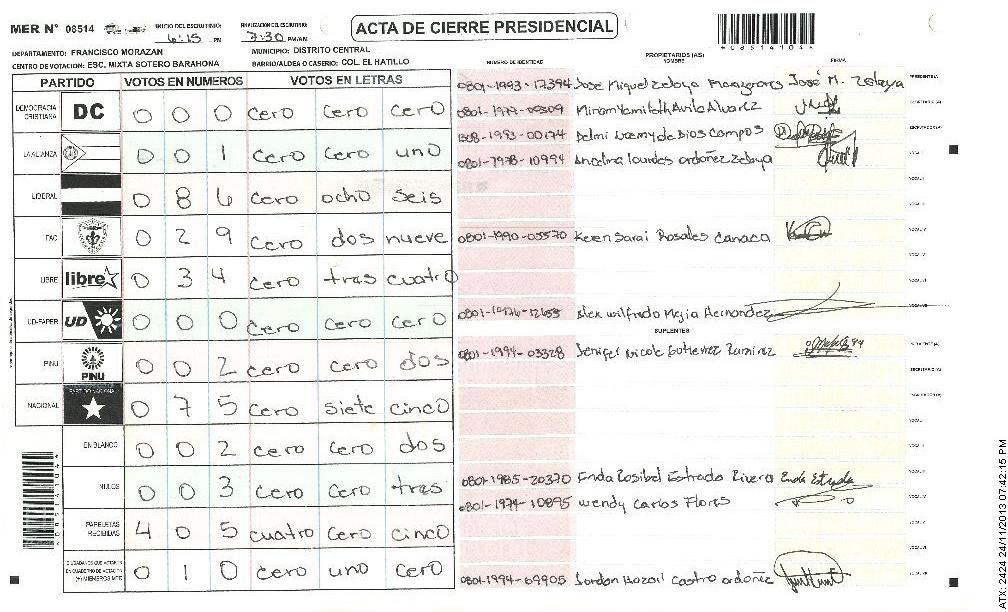 MER Nº 08514
INICIO DEL ESCRUTINIO: 6:15 PM
FINALIZACION DEL ESCRUTINIO: 7:30 PM/AM
ACTA DE CIERRE PRESIDENCIAL
DEPARTAMENTO: FRANCISCO MORAZAN
MUNICIPIO: DISTRITO CENTRAL
CENTRO DE VOTACION: ESC. MIXTA SOTERO BARAHONA
BARRIO/ALDEA O CASERIO: COL. EL HATILLO
NUMERO DE IDENTIDAD PROPIETARIOS (AS) NOMBRE FIRMA
PARTIDO VOTOS EN NUMEROS VOTOS EN LETRAS
DEMOCRACIA CRISTIANA DC 0 0 0 cero cero cero
LA ALIANZA 0 0 1 cero cero uno
LIBERAL 0 8 6 cero ocho seis
PAC 0 2 9 cero dos nueve
LIBRE libre 0 3 4 cero tras cuatro
UD-FAPER UD 0 0 0 cero cero cero
PINU PINU 0 0 2 cero cero dos
NACIONAL PARTIDO NACIONAL 0 7 5 cero siete cinco
EN BLANCO 0 0 2 cero cero dos
NULOS 0 0 3 cero cero tras
PAPELETAS RECIBIDAS 4 0 5 cuatro cero cinco
CIUDADANOS QUE VOTARON EN CUADERNO DE VOTACION (+) MIEMBROS MER 0 1 0 cero uno cero
0801-1993-17394 Jose Miguel Zelaya José M. Zelaya PRESIDENTE/A
Miriam Yamileth Avila Alvarez SECRETARIO (A)
Delmi Noemy de Dios Campos ESCRUTADOR (A)
0801-1978-10994 Ancelma lourdes ordoñez zelaya VOCAL I
0801-1990-03570 Keren Sarai Rosales Canaca
Alex wilfrado Mejia Hernandez
SUPLENTES
0801-1994-03328 Jenifer Nicole Gutierrez Ramirez
0801-1985-20370 Enda Rosibel Estrada Rivera Enda Estrada
0801-1974-10895 wendy Carlos Flores
0801-1994-69905 Castro ordoñez
ATX: 2424 24/11/2013 07:42:15 PM